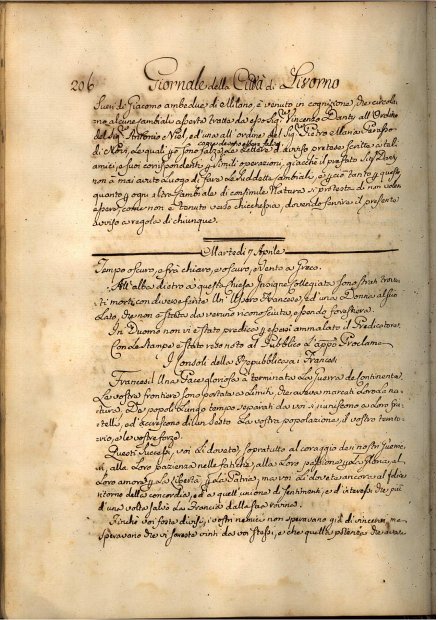 206 Giornale della Città di Livorno
Sueri, de Giacomo ambedue di Milano, è venuto in cognizione, che circola-
no alcune cambiali asserte tratte da esso Sig.r Vincenzo Dantz all'Ordine
del Sig.r Antonio Niel, ed una all'ordine del Sig.r Pietro Maria
di Novi, le quali
Lettere d'avviso pretese scritte a tali
amici, e suoi corrispondenti p simili operazioni, giacchè il prefato Sig.r Dantz
non à mai avuto luogo di fare le suddette cambiali, e p ciò tanto p queste
quanto p ogni altra Cambiale di consimile Natura si protesta di non voler
essere, come non è tenuto verso chichessia, dovendo servire il presente
avviso a regola di chiunque.
Martedì 7 Aprile
Tempo oscuro, e frà chiaro, e oscuro, e Vento a Greco.
All'alba dietro a questa Chiesa Insigne Collegiata sono stati trova-
ti morti con diverse ferite Un Francese, ed una Donna al suo
Lato, che non è stata da veruno riconosciuta, essendo forestiera.
In Duomo non vi è stato predica p essersi ammalato il Predicatore.
Con le Stampe è stato reso noto al Pubblico l'app.o Proclama
I Consoli della Repubblica, ai Francesi
Francesi! Una Pace gloriosa à terminata la Guerra del Continente.
La vostra frontiera sono portate a Limiti, che aveva marcati Loro la na-
tura. De popoli lungo tempo separati da voi si riuniscono a loro fra-
telli, ed accrescono di un sesto La vostra popolazione, il vostro terri-
torio, e le vostre forze.
Questi Successi, voi li dovete, sopratutto al coraggio de nostri Guerrie-
ri, alla Loro pazienza nelle fatiche, alla Loro passione p la Gloria, al
Loro amore p la Libertà, p la Patria; ma voi li dovete ancora al felice
ritorno della concordia, ed a quell'unione di sentimenti, e d'interessi che più
d'una volta salvò La Francia dalla sua rovina.
Finchè voi foste divisi, i vostri nemici non speravano già di vincervi, ma
speravano che vi sareste vinti da voi stessi, e che quella potenza che